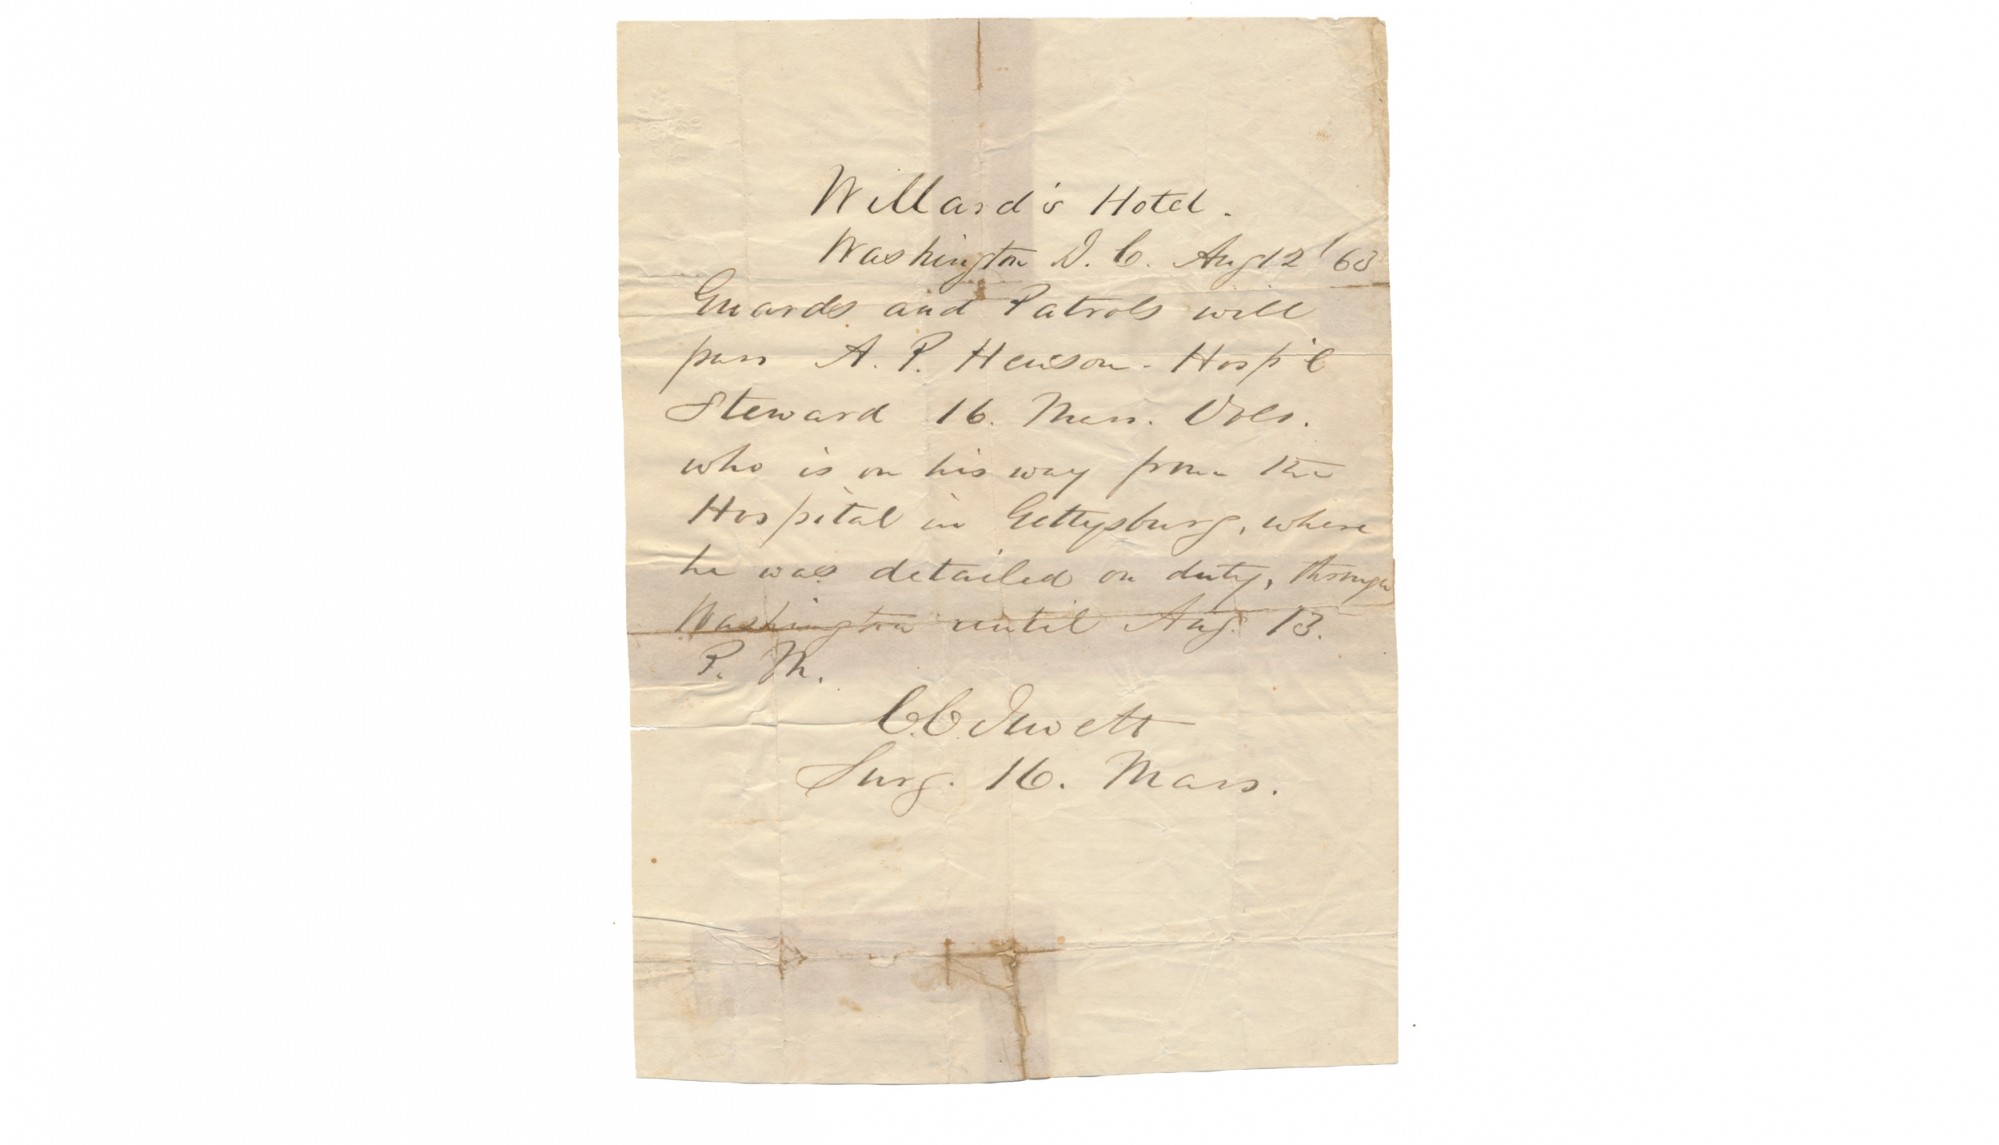 Willard's Hotel.
Washington D. C. Aug 12 '63
Guards and Patrols will
pass A. P. Henson - Hosp'l
Steward 16. Mass. Vols.
who is on his way from the
Hospital in Gettysburg, where
he was detailed on duty, through
Washington until Aug. 13.
P. M.
C. C. Jewett
Surg. 16. Mass.